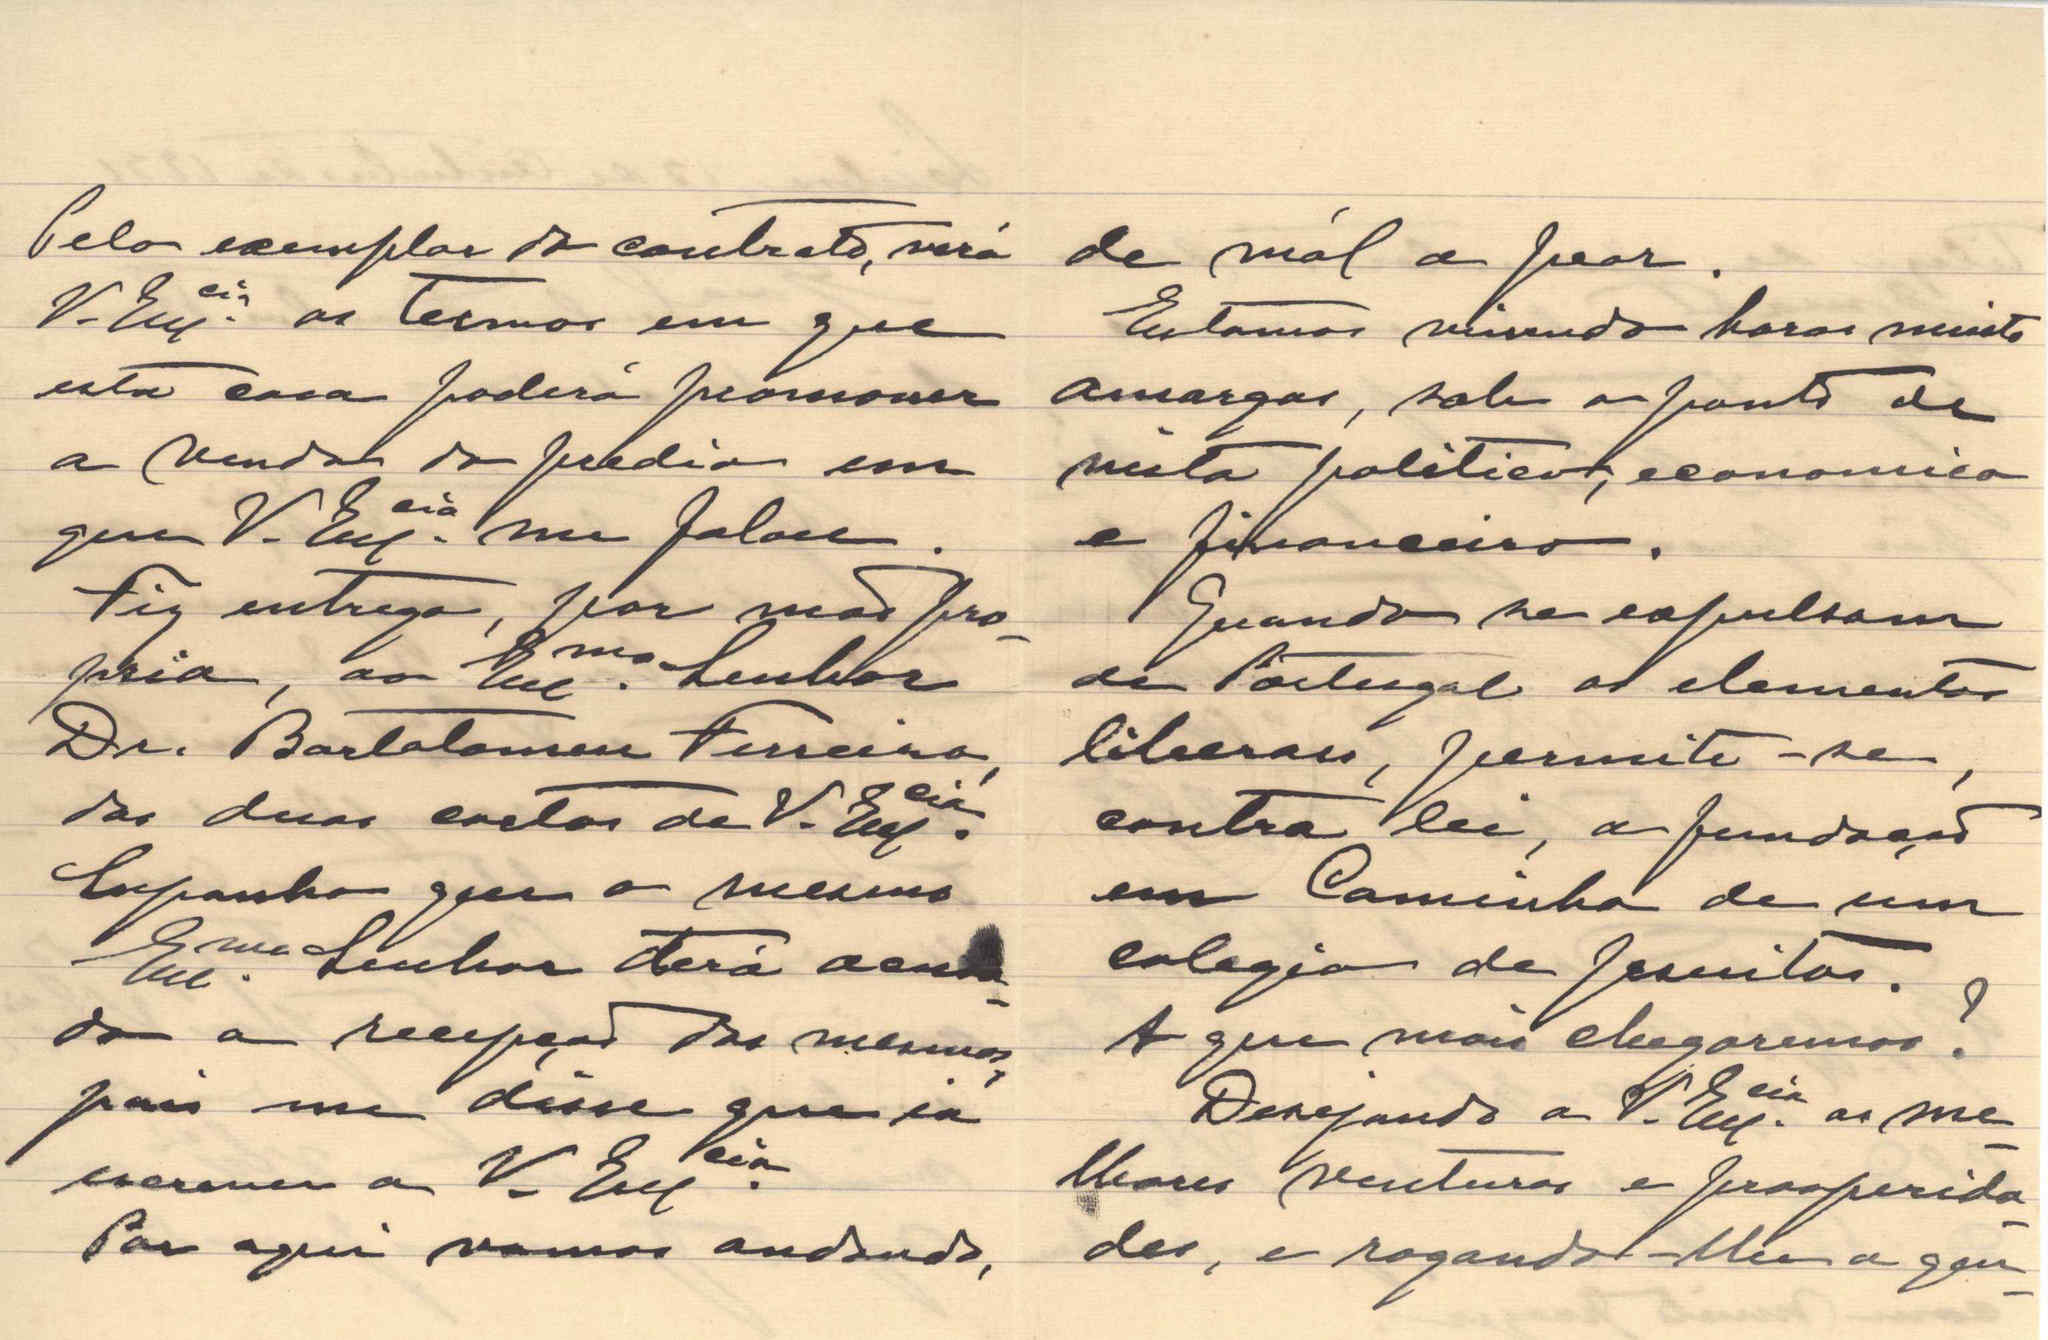 Pelo exemplar do contrato, verá
V. Exª.cia os termos em que
esta casa poderá promover
a venda do predio em
que V. Exª.cia me falou.
Fiz entrega, por mão pro-
pria, ao Exmo. Senhor
Dr. Bartolomeu Ferreira,
das duas cartas de V. Excia.
Suponho que o mesmo
Exmo. Senhor terá acusa-
do a recepção das mesmas,
pois me disse que ia
escrever a V. Excia.
Por aqui vamos andando,
de mál a peor.
Estamos vivendo horas muito
amargas, sob o ponto de
vista politico, economico
e financeiro.
Quando se expulsam
de Portugal os elementos
liberais, permite-se,
contra lei, a fundação
em Caminha de um
colegio de jesuitas.
A que mais chegaremos?
Desejando a V. Excia. as me-
lhores venturas e prosperida-
des, e rogando-lhe a quei-